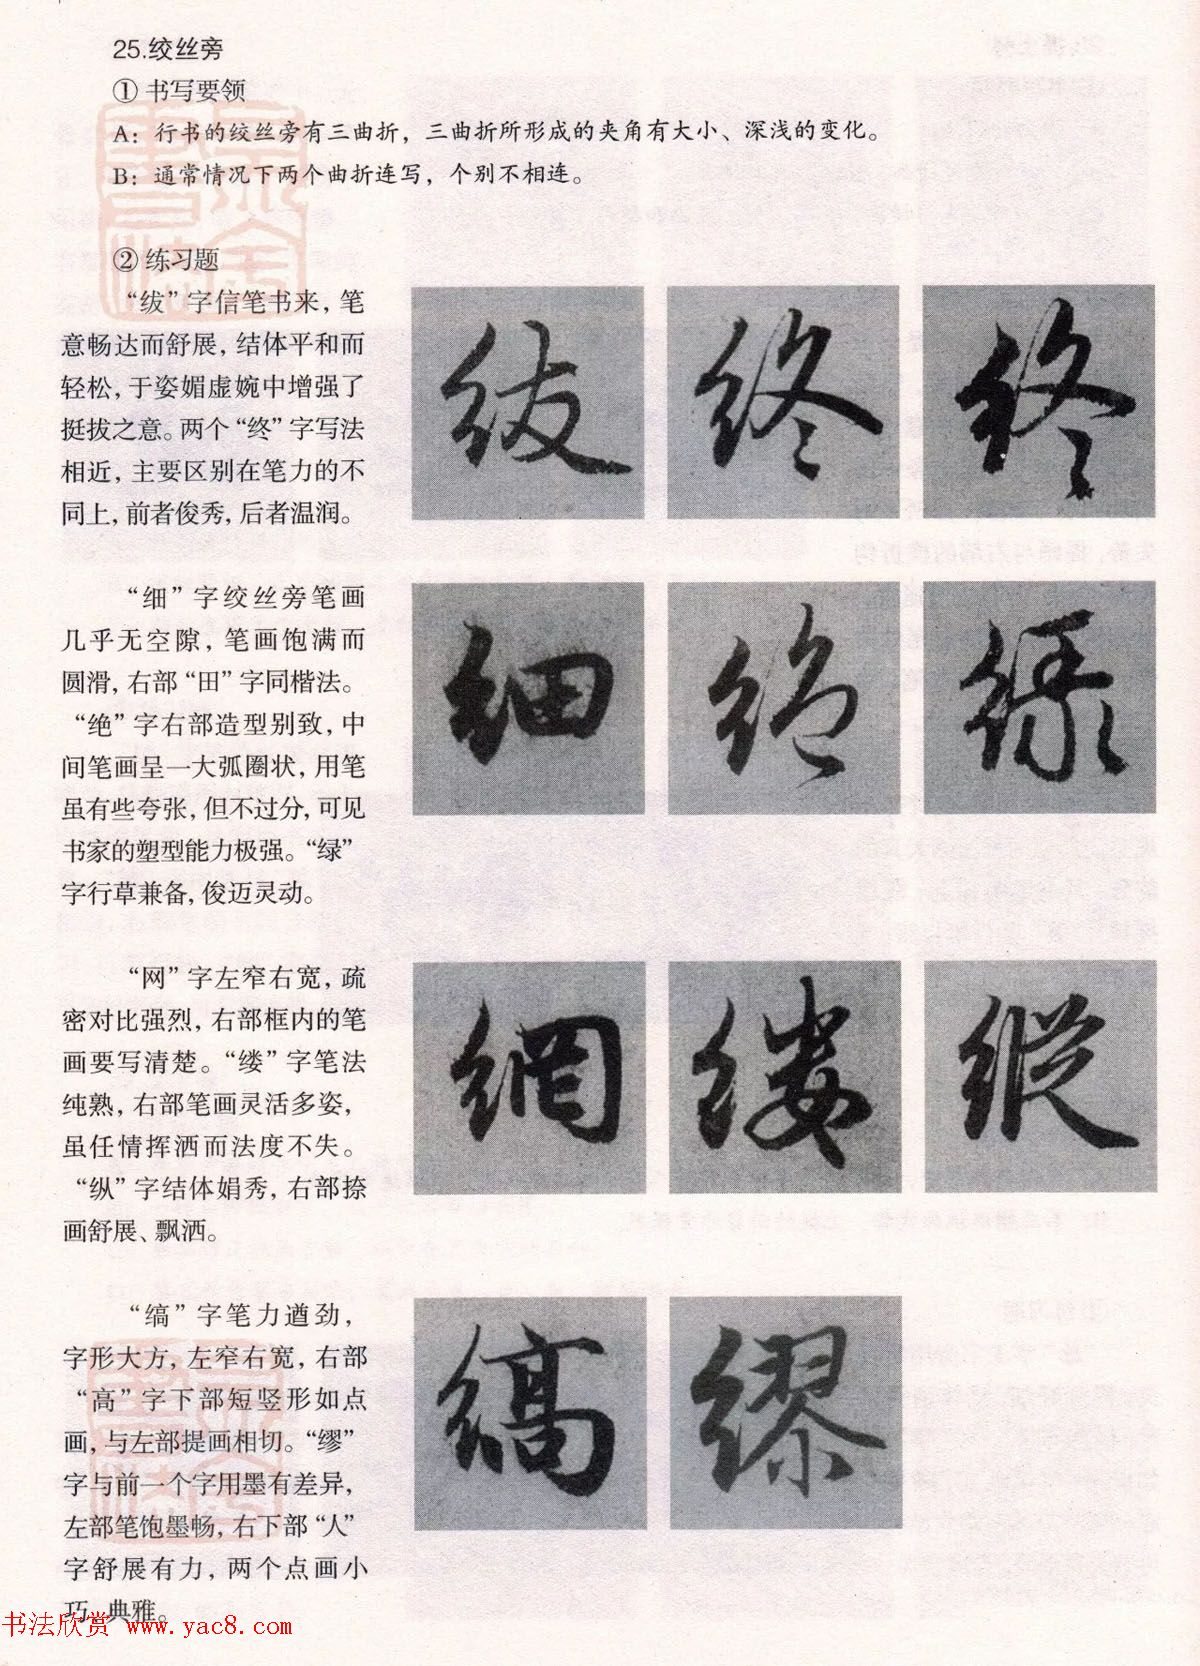 25.绞丝旁
① 书写要领
A：行书的绞丝旁有三曲折，三曲折所形成的夹角有大小、深浅的变化。
B：通常情况下两个曲折连写，个别不相连。
② 练习题
“绂”字信笔书来，笔
意畅达而舒展，结体平和而
轻松，于姿媚虚婉中增强了
挺拔之意。两个“终”字写法
相近，主要区别在笔力的不
同上，前者俊秀，后者温润。
紱 终 终
“细”字绞丝旁笔画
几乎无空隙，笔画饱满而
圆滑，右部“田”字同楷法。
“绝”字右部造型别致，中
间笔画呈一大弧圈状，用笔
虽有些夸张，但不过分，可见
书家的塑型能力极强。“绿”
字行草兼备，俊迈灵动。
細 絕 緑
“网”字左窄右宽，疏
密对比强烈，右部框内的笔
画要写清楚。“缕”字笔法
纯熟，右部笔画灵活多姿，
虽任情挥洒而法度不失。
“纵”字结体娟秀，右部捺
画舒展、飘洒。
網 縷 縱
“缟”字笔力遒劲，
字形大方，左窄右宽，右部
“高”字下部短竖形如点
画，与左部提画相切。“缪”
字与前一个字用墨有差异，
左部笔饱墨畅，右下部“人”
字舒展有力，两个点画小
巧、典雅。
縞 繆
书法欣赏 www.yac8.com